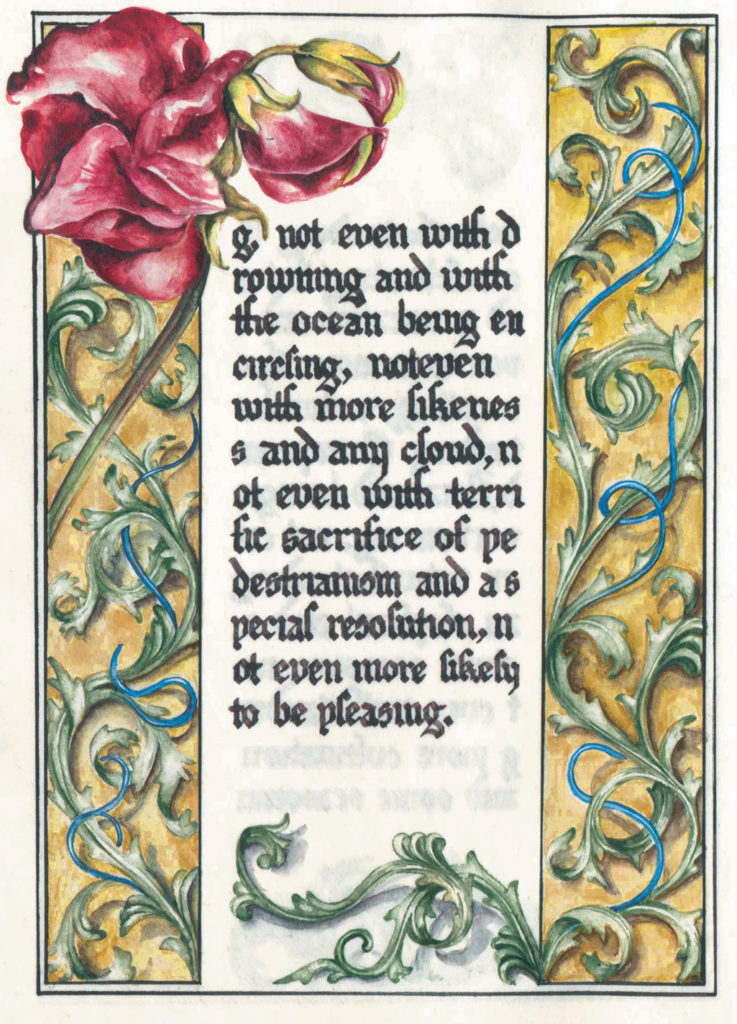 g, not even with d
rowning and with
the ocean being en
circling, noteven
with more likenes
s and any cloud, n
ot even with terri
fic sacrifice of pe
destrianism and a s
pecial resolution, n
ot even more likely
to be pleasing.